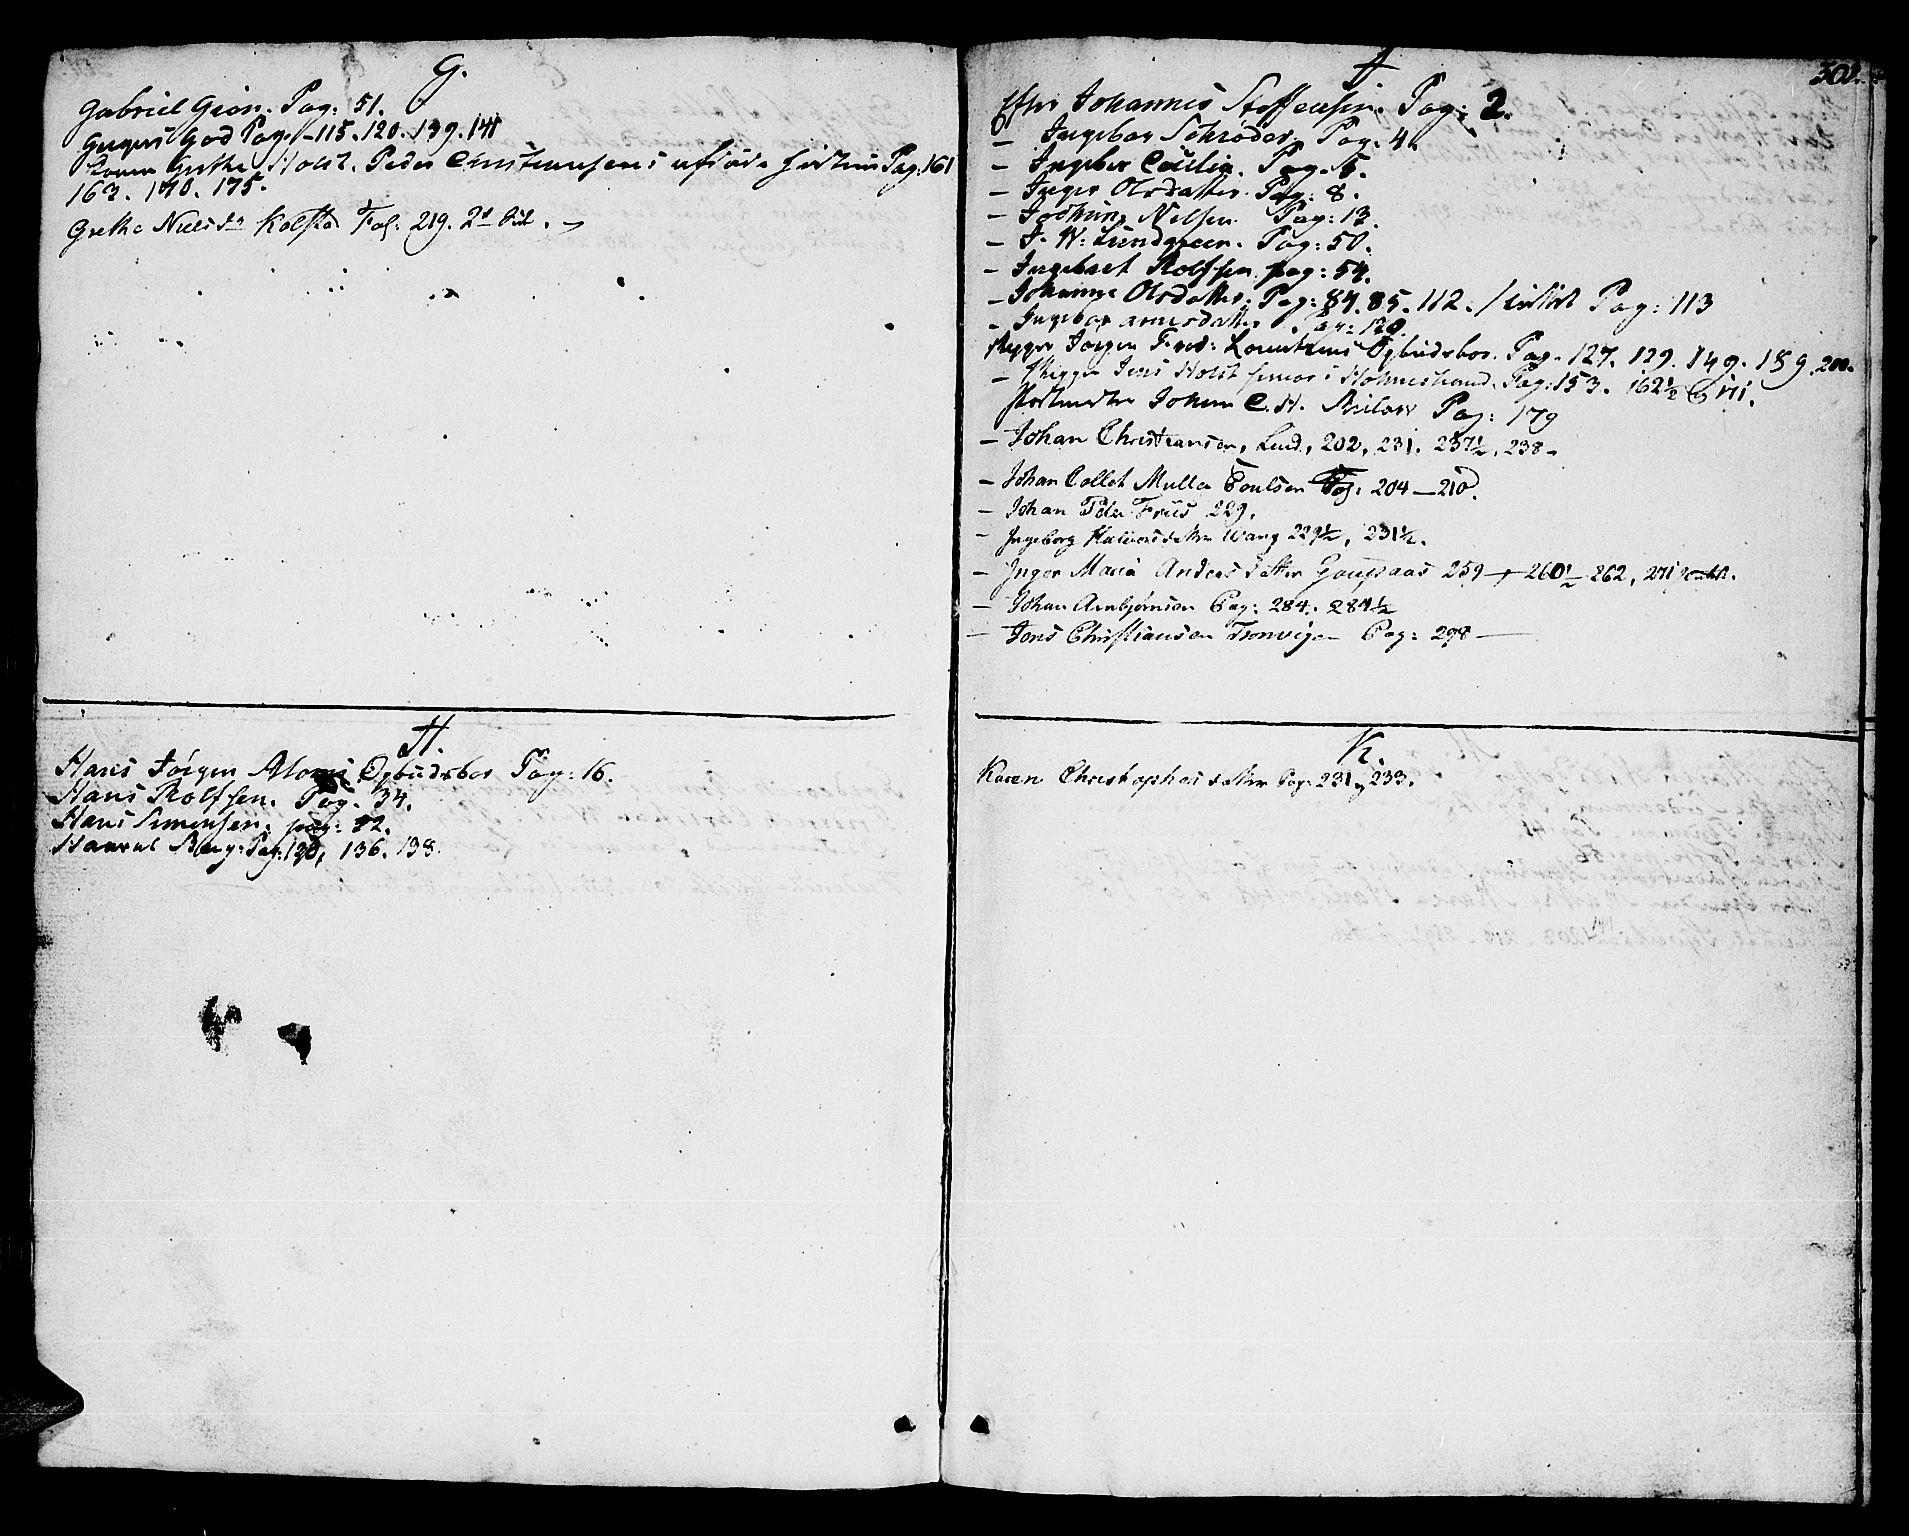 G.
Gabriel Grøn. Pag: 51.
Pag. 115. 120. 139. 141
Grethe Holst. Peder Christiansens Pag. 161
163. 170. 175.
Grethe Nielsd. Kolstad Fol: 219. 2d
H.
Hans Jørgen Pag: 16.
Hans Rolfsen. Pag. 34.
Hans Simensen. pag:
Berg. Pag: 120, 136. 138.
302.
I
Efter Johannes Steffensen. Pag: 2.
— Ingebor Schrøder. Pag. 4.
— Ingebor Cæcilia. Pag. 5.
— Inger Olsdatter. Pag: 8.
— Jochum Nelsen. Pag: 13.
— J. W: Lundgreen. Pag: 50.
— Ingebret Rolfsen. pag: 54.
— Johanne Olsdatter. Pag: 84. 85. 112. Pag: 113
— Ingebor Arnesdatter. Pag: 120.
Skipper Jørgen Fred: Lorentzens Pag. 127. 129. 149. 159. 200.
— Skipper Jens Holst senior i Holmestrand. Pag: 153. 162½ og 171.
Postmester Johan C. H. Pag: 179
— Johan Christiansen, Lund, 202, 231. 237½, 238 –
— Johan Collet Muller Poulsen Pag: 204 — 210.
— Johan Peder Friis 229.
— Ingeborg Halvorsdatter Wang 229½, 231½.
— Inger Maria Andersdatter Goupaas 259 – 260½ – 262, 271
— Johan Arnbjørnsen Pag: 284. 284½
— Jens Christiansen Tronvigen Pag: 298 —
K.
Karen Christophersdatter Pag. 231 og 233.